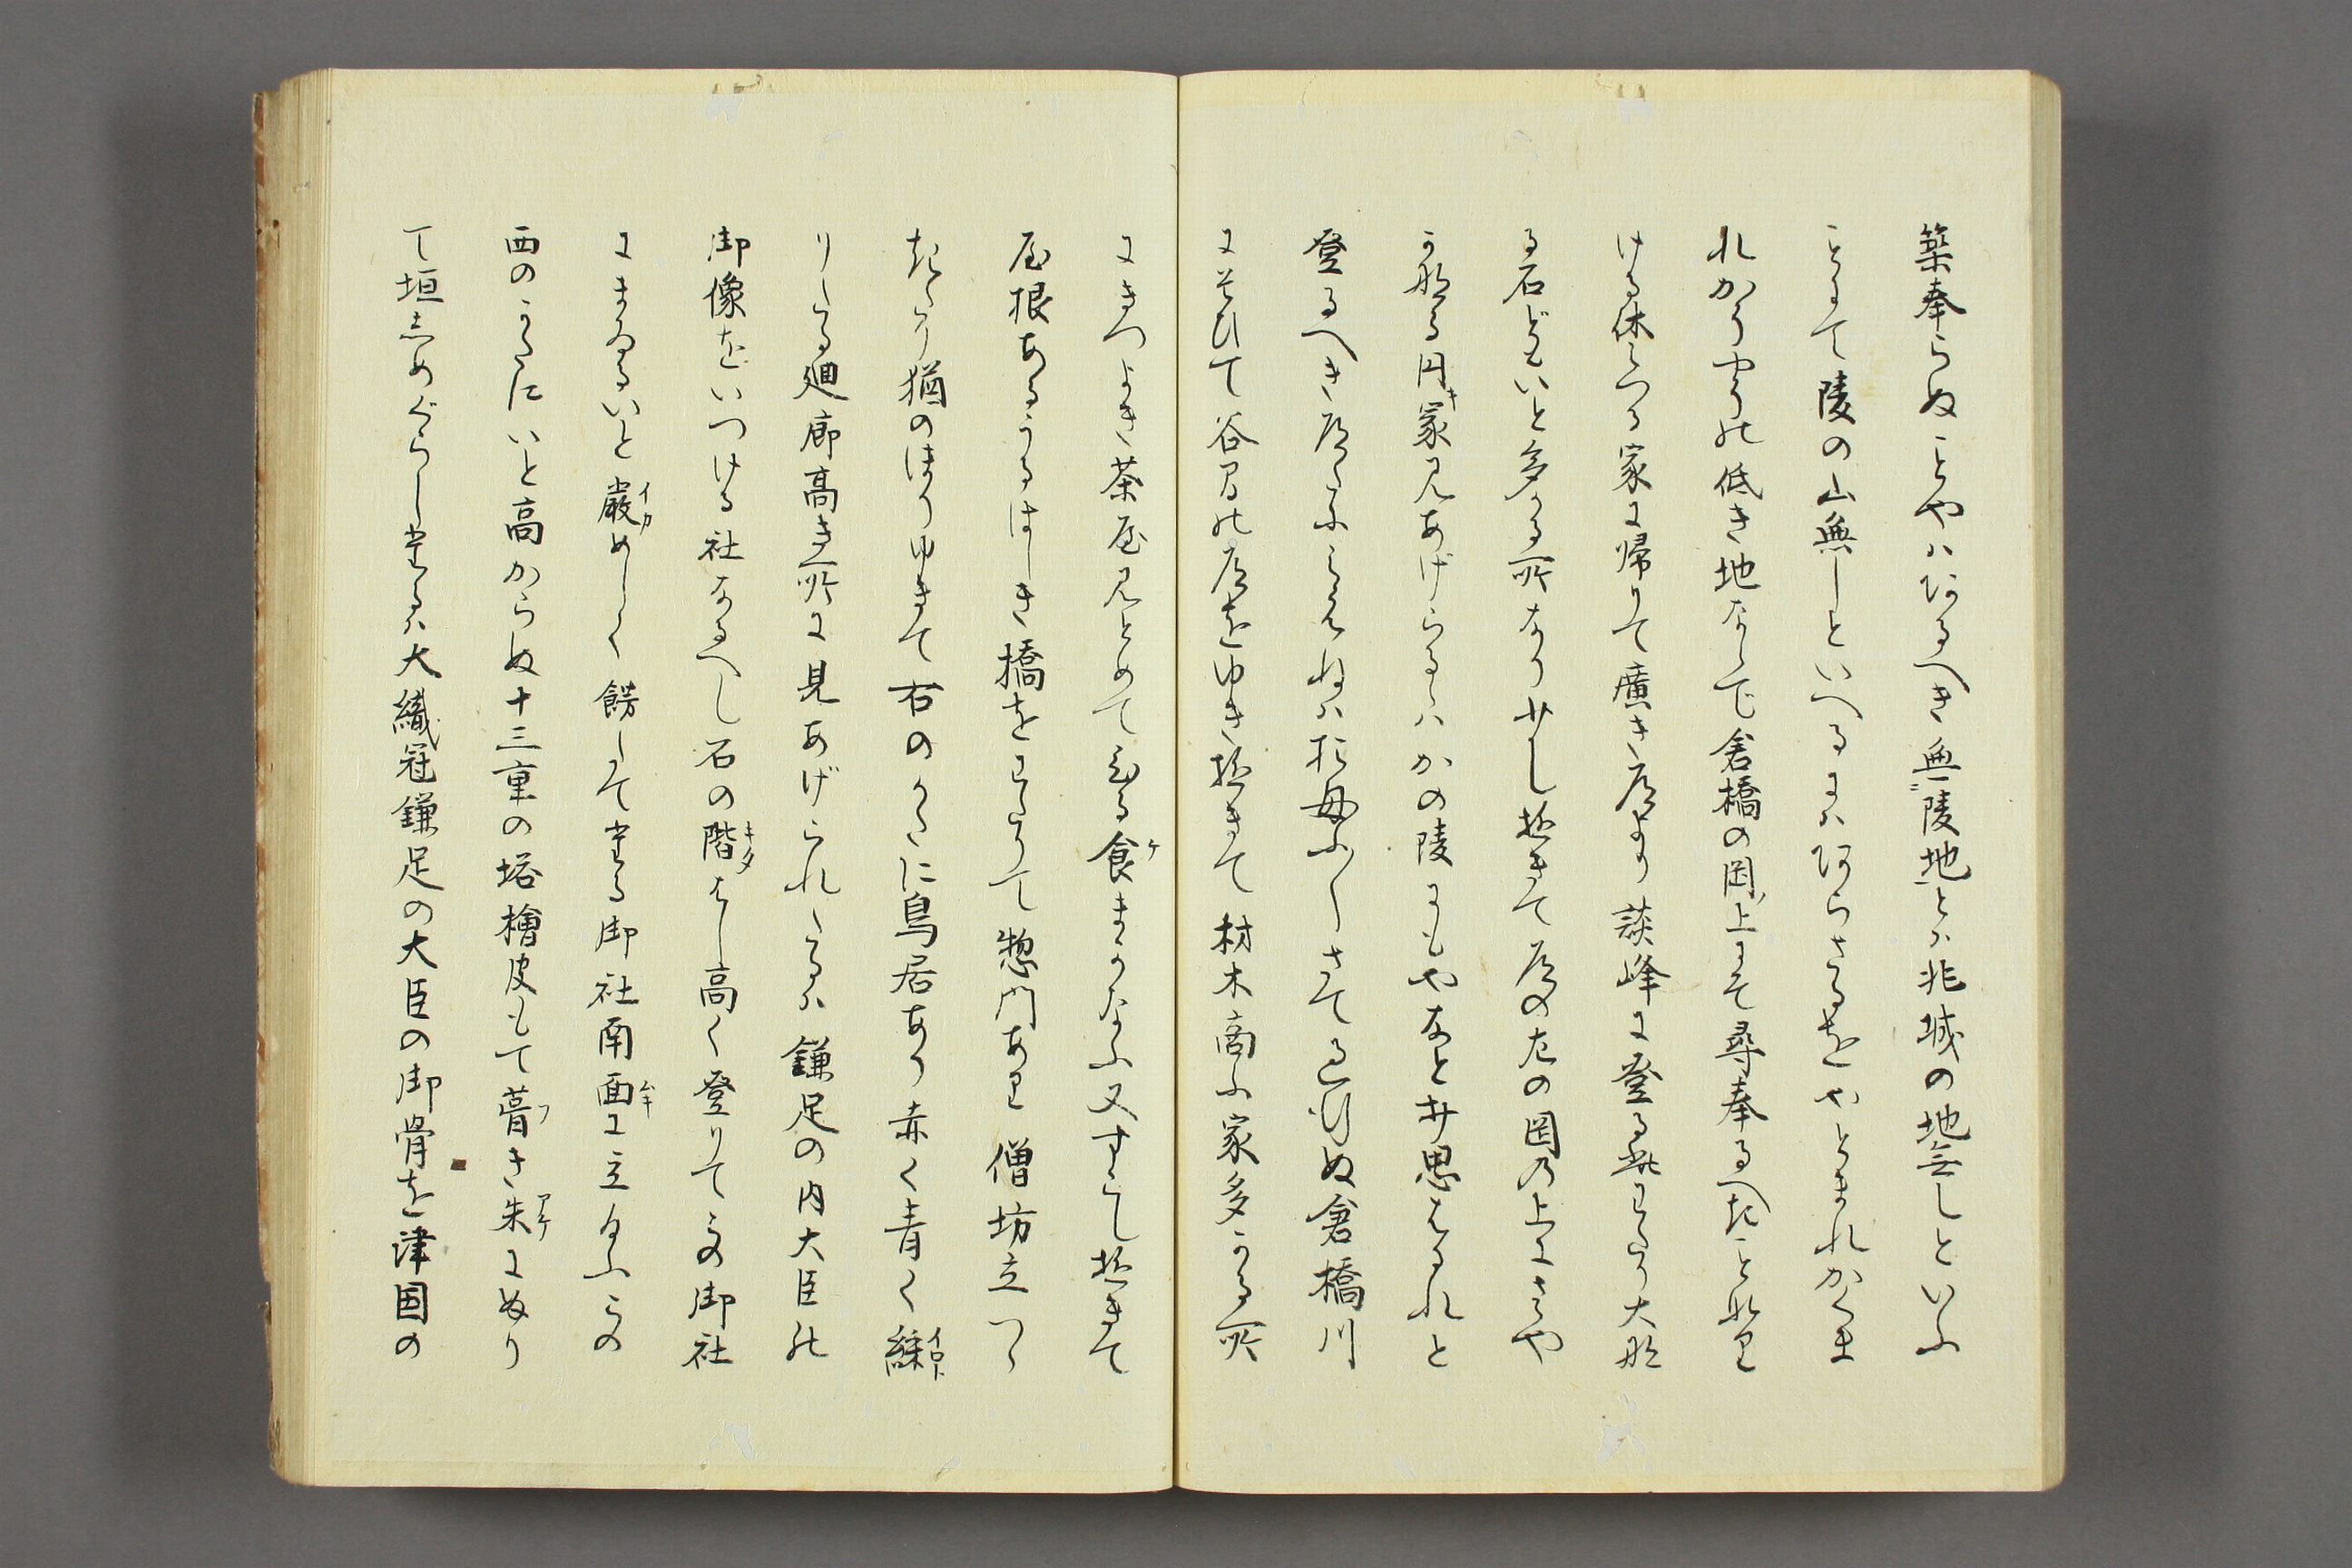 築奉らぬことやハ阿るへき無陵地とハ兆域の地無しといふ
ことにて陵の山無しといへるにハ阿らさるをやとまれかくま
れかうやうの低き地ならで倉橋の岡ノ上にて尋奉るへきことなり
ける休らへる家に帰りて廣き道より談峰に登る此わたり大形
る石どもいと多かる所なり少し過きて道の左の岡の上にさゝや
かなる円キ家見あげらるゝハかの陵にもやなと思はるれと
登るへき道しらねハおしさて過行ぬ倉橋川
にそひて谷間の道をゆき過きて材木商ふ家多かる所
にきつよき茶屋見とめてひる食まかなふ又すこし過きて
屋根あるうるはしき橋をわたりて惣門あり僧坊立つゝ
きたり猶のほりゆきて右のかたに鳥居あり赤く青く綵
りたる廻廊高き所に見あげられたるハ鎌足の内大臣の
御像をいつける社なるへし石の階はし高く登りてその御社
にまゐるいと巖めしく餝りそそへたる御社南面に立給ふその
西のかたにいと高からぬ十三重の塔檜皮もて葺き朱にぬり
て垣しめぐらしたるハ大織冠鎌足の大臣の御骨を津国の